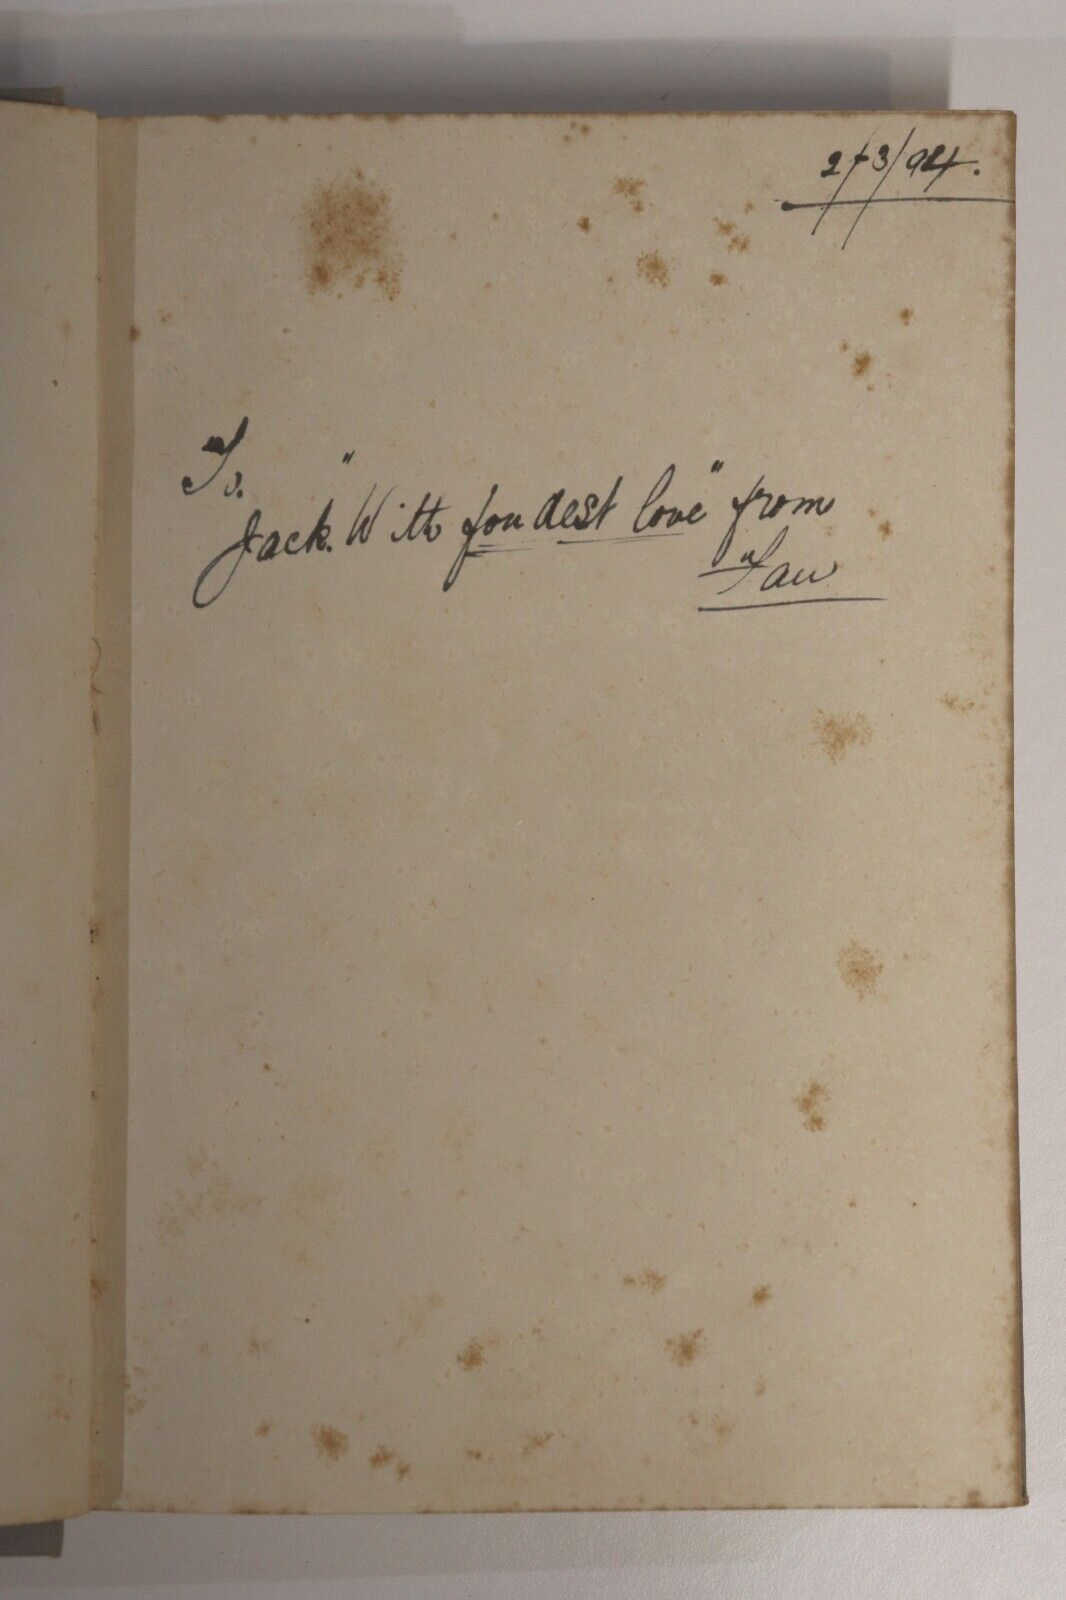 2/3/94.
To.
Jack. "With fondest love" from